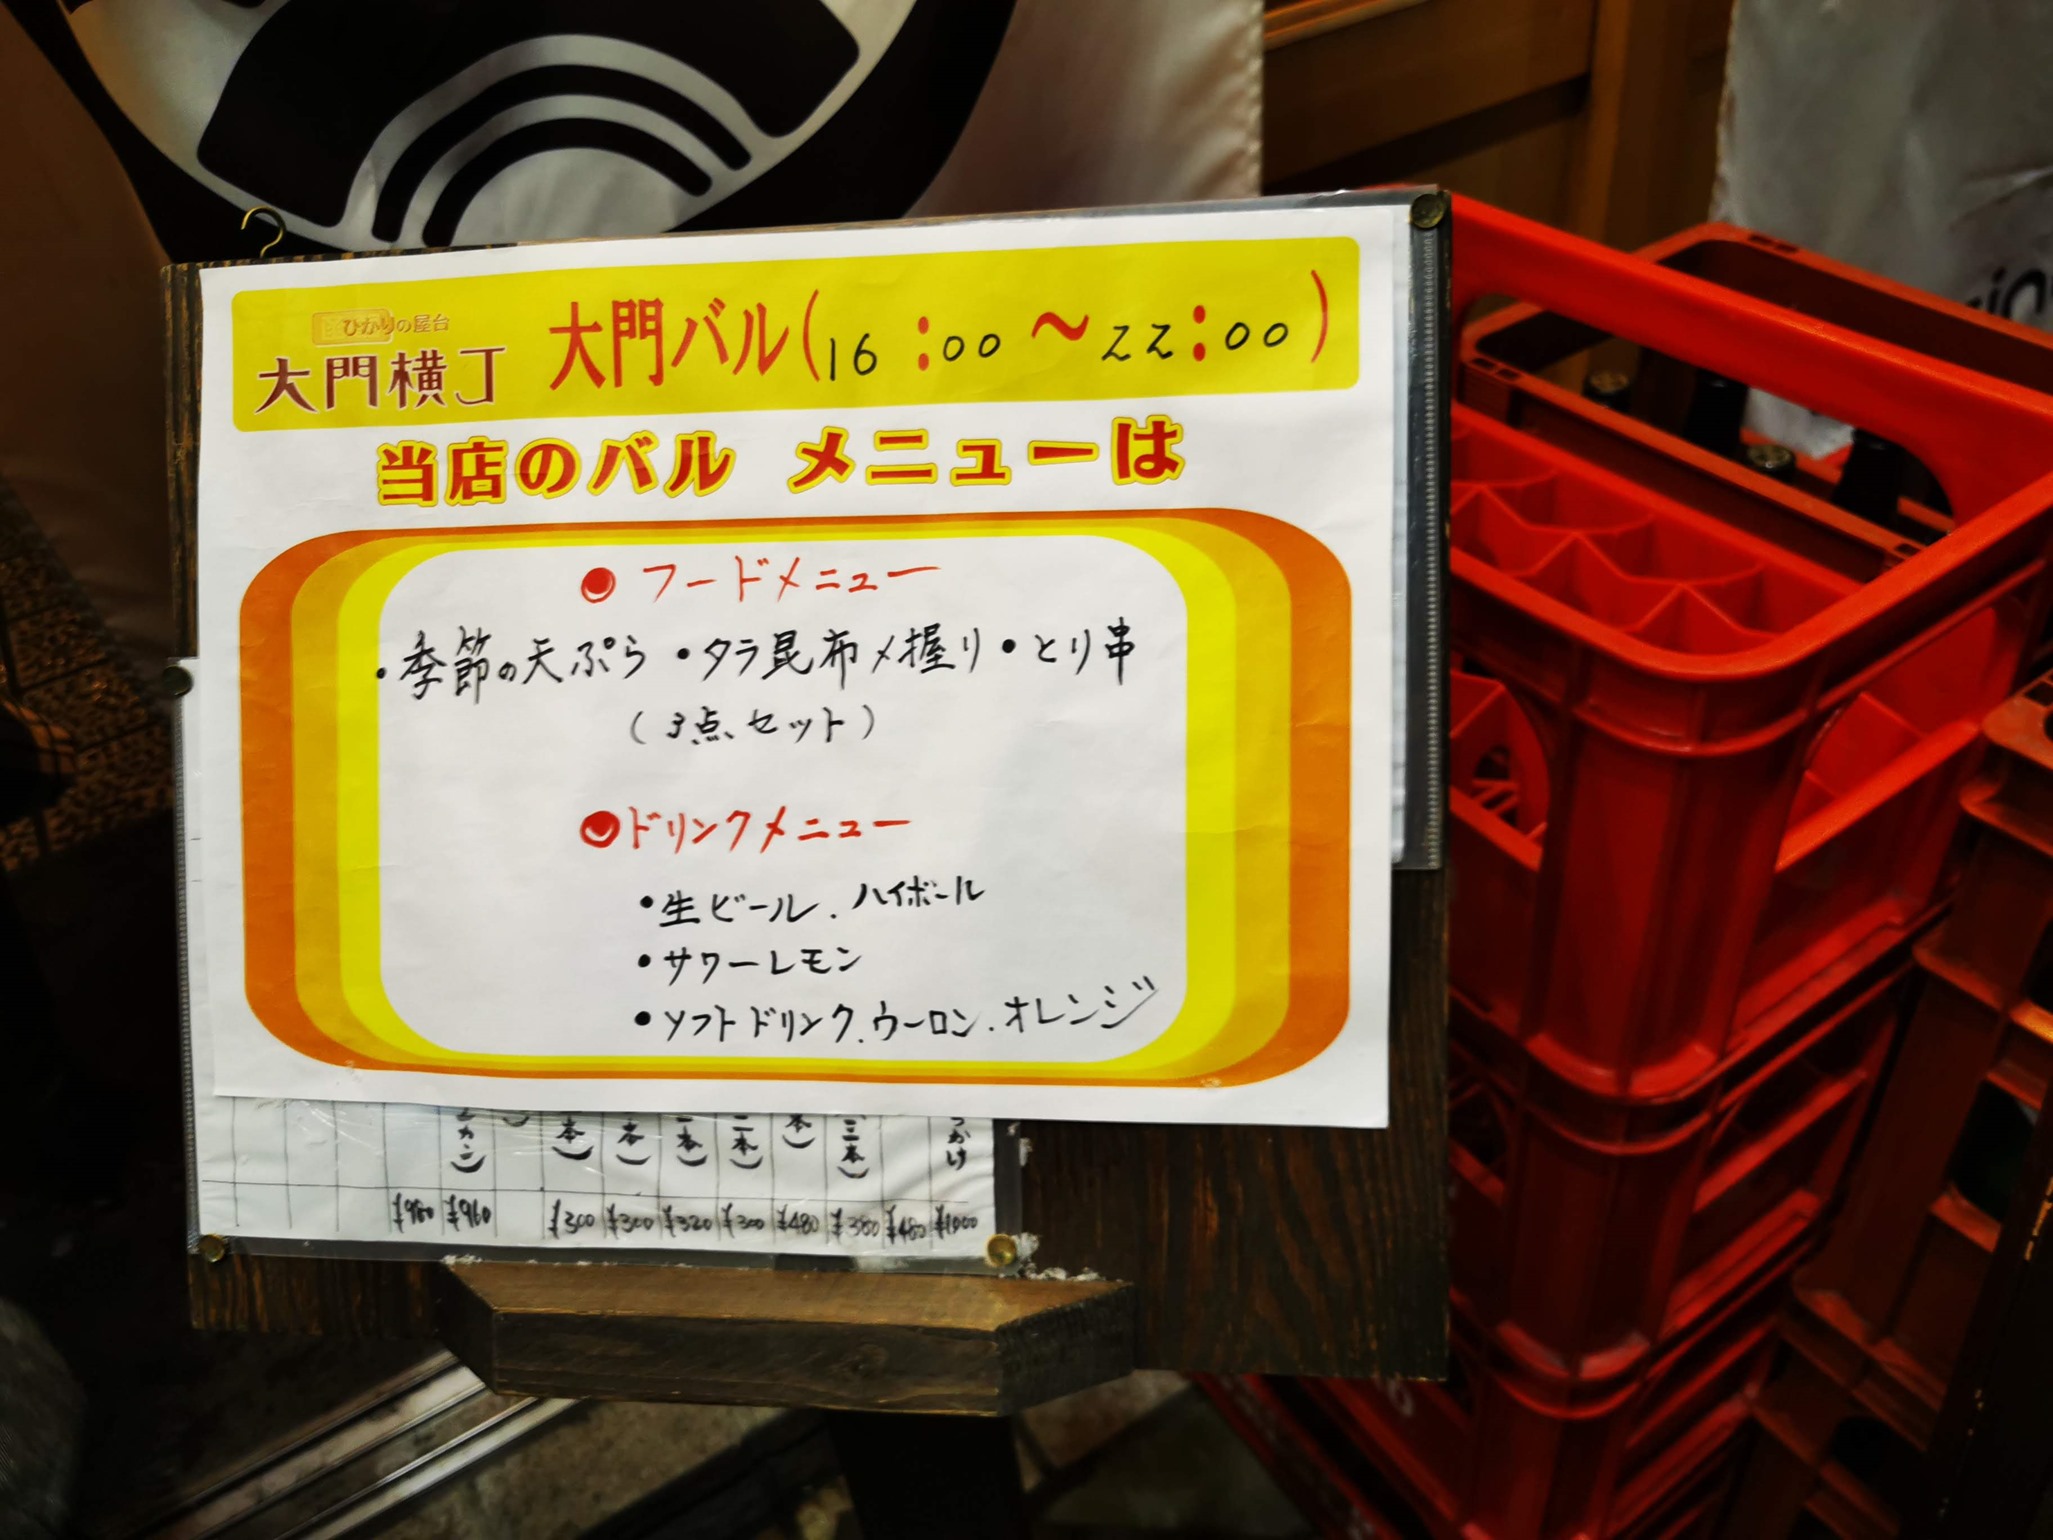 ひかりの屋台
大門横丁
大門バル(16:00～22:00)
当店のバル メニューは
●フードメニュー
・季節の天ぷら・タラ昆布〆握り・とり串
(3点セット)
●ドリンクメニュー
・生ビール.ハイボール
・サワーレモン
・ソフトドリンク.ウーロン.オレンジ
つかけ
(三本)
本)
二本)
二本)
本)
本)
¥980 ¥960 ¥300 ¥300 ¥320 ¥300 ¥480 ¥380 ¥480 ¥1000